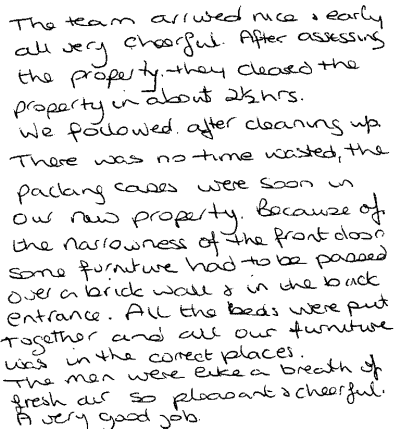 The team arrived nice & early
all very cheerful. After assessing
the property, they cleared the
property in about 2½hrs.
We followed. after cleaning up.
There was no time wasted, the
packing cases were soon in
our new property. Because of
the narrowness of the front door
some furniture had to be passed
over a brick wall & in the back
entrance. All the beds were put
together and all our furniture
was in the correct places.
The men were like a breath of
fresh air so pleasant & cheerful.
A very good job.